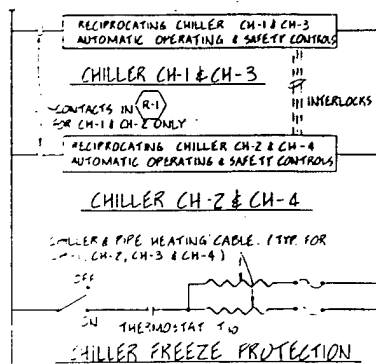 RECIPROCATING CHILLER CH-1 & CH-3
AUTOMATIC OPERATING & SAFETY CONTROLS
CHILLER CH-1 & CH-3
CONTACTS IN R-1
FOR CH-1 & CH-2 ONLY
INTERLOCKS
RECIPROCATING CHILLER CH-2 & CH-4
AUTOMATIC OPERATING & SAFETY CONTROLS
CHILLER CH-2 & CH-4
CHILLER & PIPE HEATING CABLE. (TYP. FOR
CH-1, CH-2, CH-3 & CH-4)
OFF
ON
THERMOSTAT
CHILLER FREEZE PROTECTION